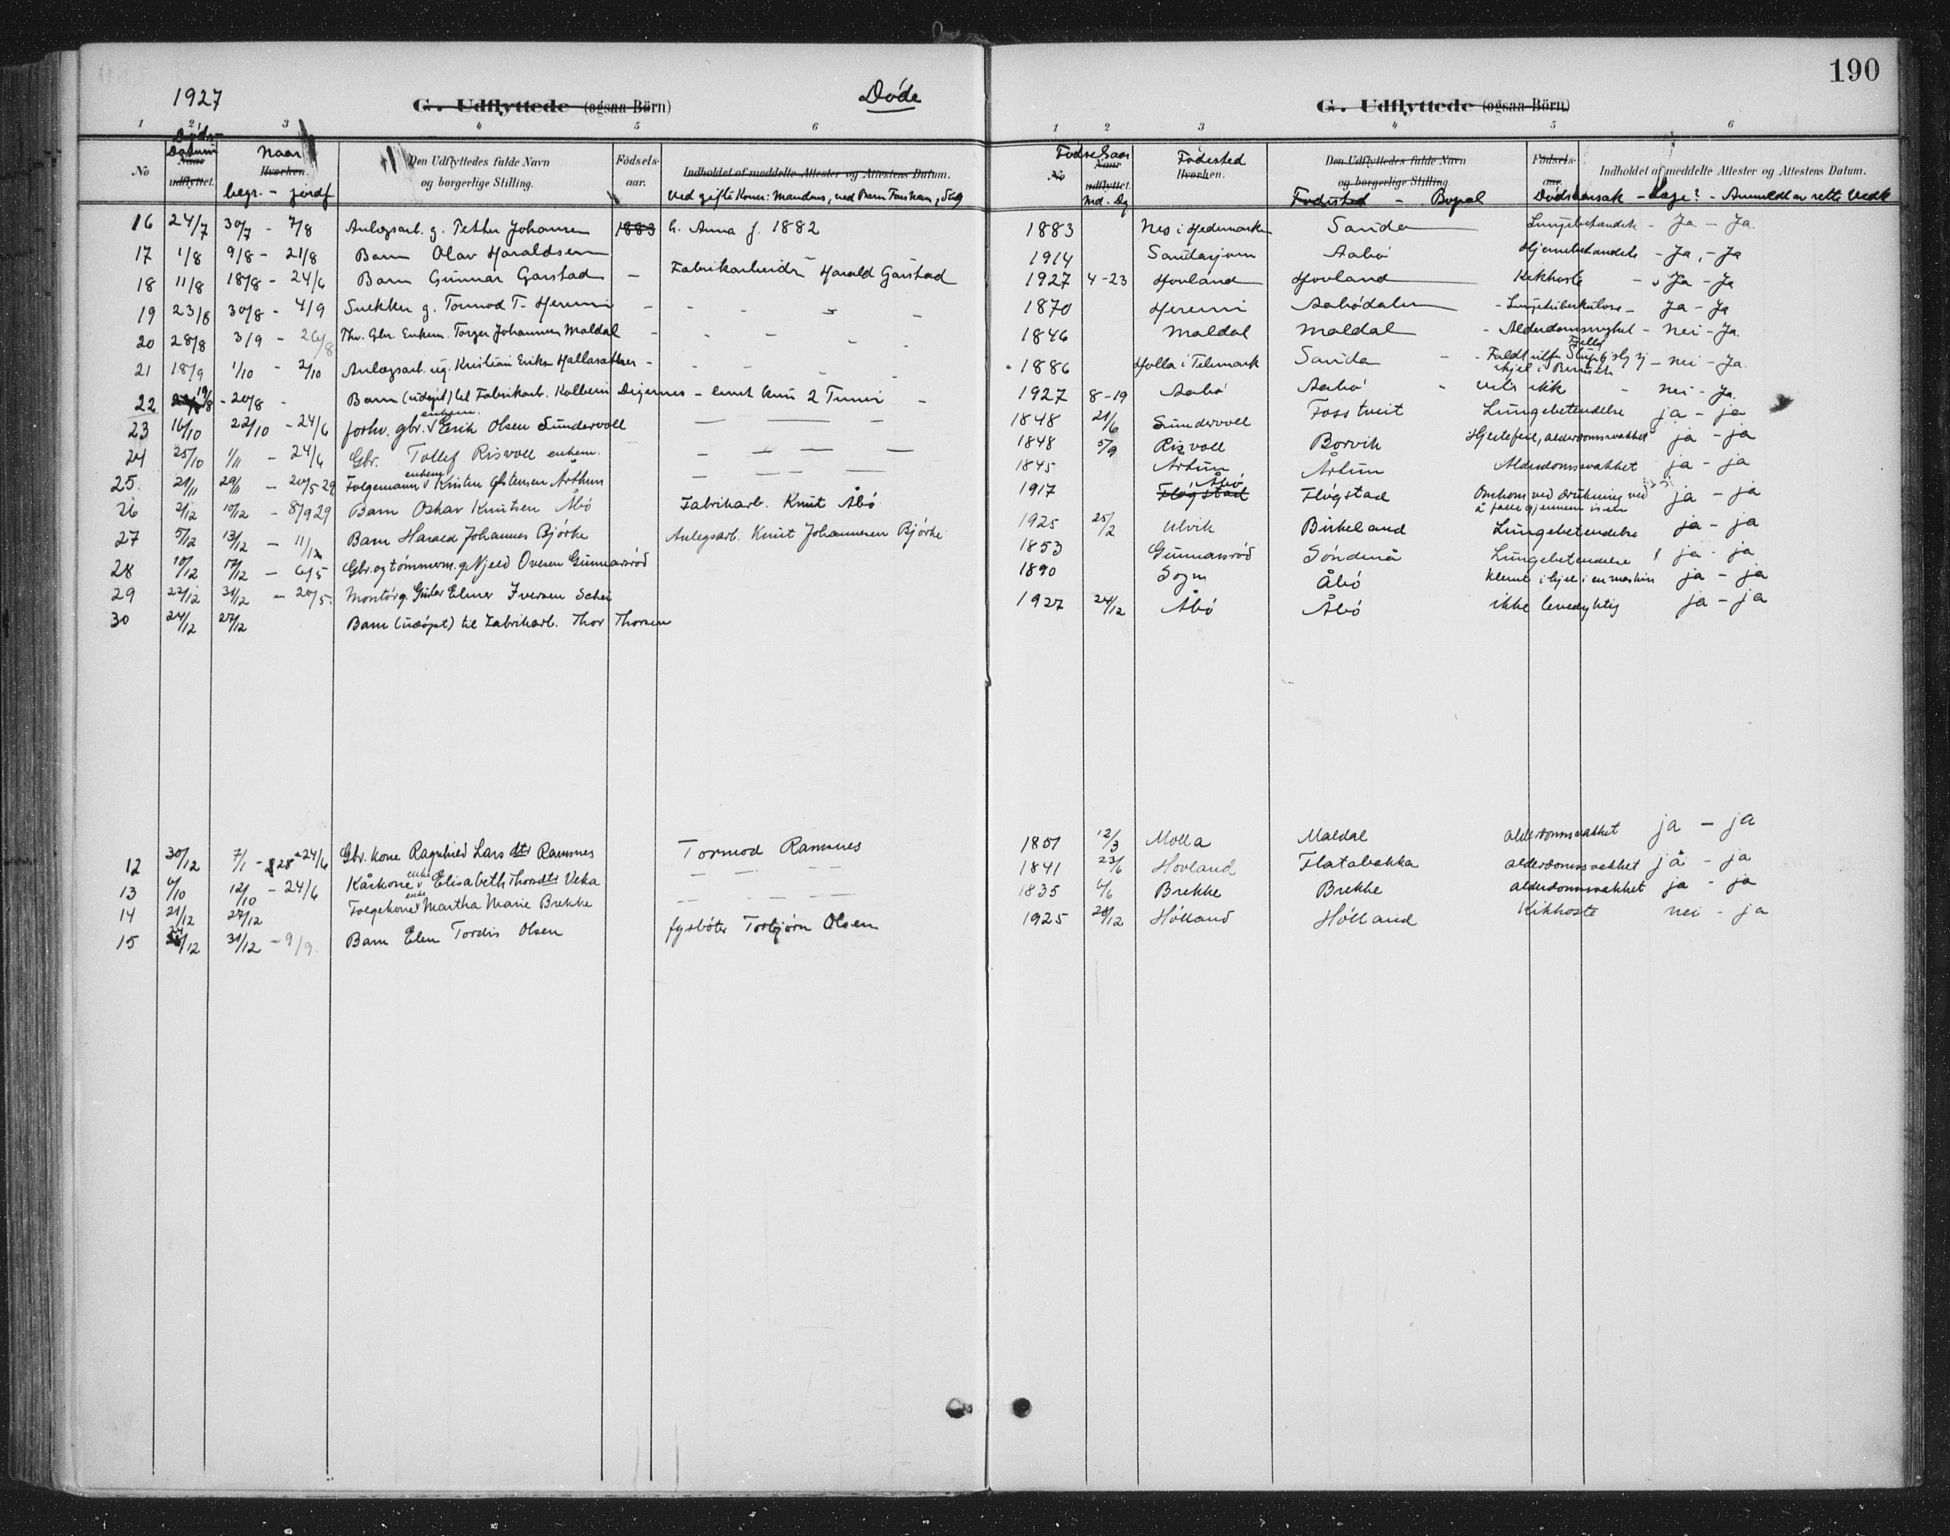 190
1927
G. Udflyttede (ogsaa Börn)
Døde
G. Udflyttede (ogsaa Börn)
1 2 3 4 5 6
1 2 3 4 5 6
No
Døds-
Datum
Naar
udflyttet.
Naar
Hvorhen.
begr. - jordf
Den Udflyttedes fulde Navn
og borgerlige Stilling.
Fødsels-
aar.
Indholdet af meddelte Attester og Attestens Datum.
Ved gifte Koner: Mandens, ved Barn Farens Navn, Stg
Fødselsaar
No
Naar
udflyttet.
Md. Dg
Fødested
Hvorhen.
Den Udflyttedes fulde Navn
og borgerlige Stilling
Fødested - Bopæl
Fødsels-
aar.
Indholdet af meddelte Attester og Attestens Datum.
Dødsaarsak - Læge? - Anmeldt av rette Vedk
16 24/7 30/7 - 7/8 Anlægsarb. g. Petter Johansen 1883 G. Anna f. 1882 1883 Nes i Hedemarken Sauda Lungebetændelse - Ja - Ja.
17 1/8 9/8 - 21/8 Barn Olav Haraldsen 1914 Saudasjøen Aabø Hjernebetændels - Ja, - Ja
18 11/8 18/8 - 24/6 Barn Gunnar Garstad - Fabrikarbeider Harald Garstad 1927 4-23 Hovland Hovland Kikhoste - Ja - Ja
19 23/8 30/8 - 4/9 Snekker g. Tormod T. Hereim 1870 Hereim Aabødalen - Lungetuberkulose - Ja - Ja
20 28/8 3/9 - 26/8 Fhv. Gbr. Enkem. Torger Johannes Maldal 1846 Maldal Maldal - Alderdomssvakhet - Nei - Ja.
21 18/9 1/10 - 2/10 Anlægsarb. ug. Kristian Eriksen Hallasæther - 1886 Holla i Telemark Sauda - Faldt utfor ihjel - nei - Ja.
22 19/8 - 20/8 - Barn (udøpt) til Fabrikarb. Kolbein Digernes - levet kun 2 Timer - 1927 8-19 Aabø Aabø - nei - Ja.
23 16/10 22/10 - 24/6 forhv. gbr. enkem. Erik Olsen Sundervoll 1848 21/6 Sundervoll Fosstveit Lungebetendelse ja - ja
24 25/10 1/11 - 24/6 Gbr. Tollef Risvoll enkem. 1848 5/9 Risvoll Borvik Hjertefeil, alderdomssvakhet ja - ja
25. 21/11 29/11 - 20/5 29 Folgemann enkem Kristen Østensen Årthun 1845 Årtun Årtun Alderdomssvakhet ja - ja
26 2/12 10/12 - 8/9 29 Barn Oskar Knutsen Åbø Fabrikarb. Knut Åbø 1917 Fløgstad Åbø Fløgstad Omkom ved drukning ved å falle gjennem isen ja - ja
27 5/12 13/12 - 11/12 Barn Harald Johannes Bjørke Anlegsarb. Knut Johannesen Bjørke 1925 25/2 Ulvik Birkeland Lungebetendelse ja - ja
28 10/12 17/12 - 6/5 Gbr. og tømmerm. g. Njeld Ovesen Gunnarsrød 1853 Gunnarsrød Søndenå Lungebetendelse ja - ja
29 22/12 31/12 - 20/5. Montør g. Elmer Iversen Schei 1890 Sogn Åbø klemt ihjel i en maskin ja - ja
30 24/12 27/12 Barn (udøpt) til Fabrikarb. Thor Thorsen 1927 24/12 Åbø Åbø ikke levedyktig ja - ja
12 30/12 7/1 - 28 - 24/6 Gbr. kone Ragnhild Larsdtr Ramsnes Tormod Ramsnes 1851 12/3 Molla Maldal alderdomssvakhet ja - ja
13 6/10 12/10 - 24/6 Kårkone enke Elisabeth Thorsdtr Veka 1841 23/6 Hovland Flatabakka alderdomssvakhet ja - ja
14 21/12 27/12 Folgekone enke Martha Marie Brekke 1835 6/6 Brekke Brekke alderdomssvakhet ja - ja
15 24/12 31/12 - 9/9. Barn Elen Tordis Olsen fyrbøter Torbjørn Olsen 1925 28/12 Hølland Hølland Kikhoste nei - ja